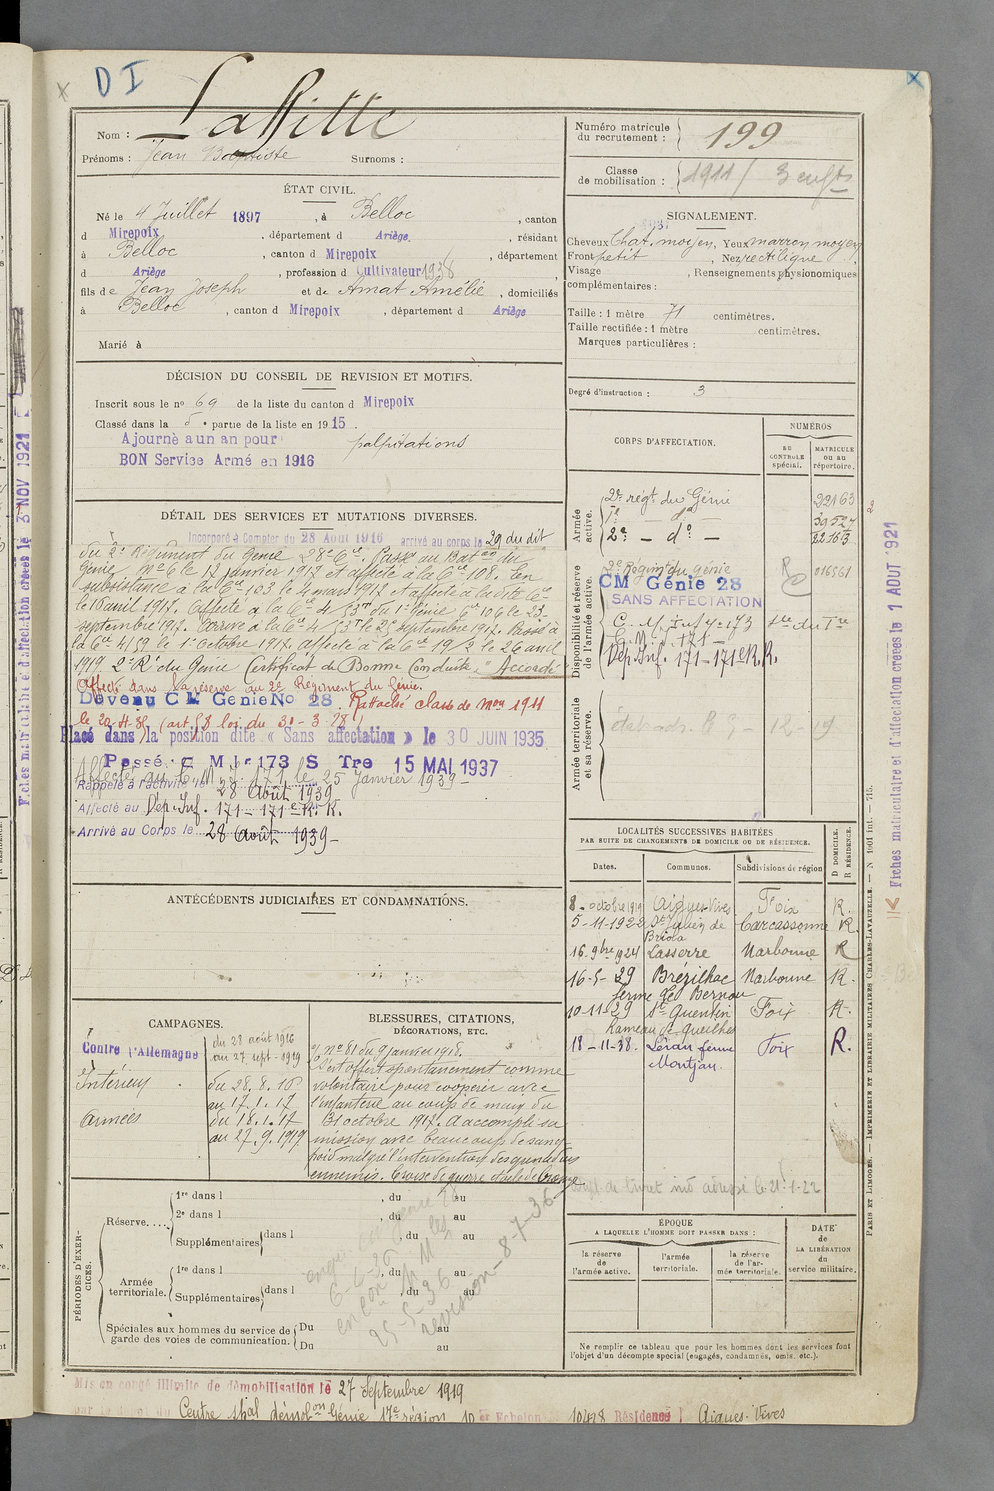 D I
Nom : Laffitte
Prénoms : Jean Baptiste Surnoms :
Numéro matricule du recrutement : 199
Classe de mobilisation : 1911 / 3 enfts
ÉTAT CIVIL.
Né le 4 Juillet 1897, à Belloc, canton
d Mirepoix, département d Ariège, résidant
à Belloc, canton d Mirepoix, département
d Ariège, profession d Cultivateur 1938
fils de Jean Joseph et de Amat Amélie, domiciliés
à Belloc, canton d Mirepoix, département d Ariège
Marié à
SIGNALEMENT.
Cheveux Chat. moyen, Yeux marron moyen
Front petit, Nez rectiligne
Visage , Renseignements physionomiques
complémentaires :
Taille : 1 mètre 71 centimètres.
Taille rectifiée : 1 mètre centimètres.
Marques particulières :
Degré d'instruction : 3
DÉCISION DU CONSEIL DE REVISION ET MOTIFS.
Inscrit sous le nº 69 de la liste du canton d Mirepoix
Classé dans la 5 e partie de la liste en 1915.
Ajourné a un an pour palpitations
BON Service Armé en 1916
DÉTAIL DES SERVICES ET MUTATIONS DIVERSES.
Incorporé à Compter du 28 Août 1916 arrivé au corps le 29 du dit
du 2e Régiment du Génie 28e Cie. Passé au Baton du
Génie Nº 6 le 12 janvier 1917 et affecté à la Cie 108. En
subsistance à la Cie 103 le 4 mars 1917 et affecté à la dite Cie
le 10 avril 1917. Affecté à la Cie 4/53T du 1er Génie Cie 106 le 23
septembre 1917. Arrivé à la Cie 4/53T le 25 septembre 1917. Passé à
la Cie 4/59 le 1er Octobre 1917. affecté à la Cie 19/2 le 26 avril
1919 2e R. du Génie Certificat de Bonne Conduite "Accordé"
Affecté dans la réserve au 2e Régiment du Génie.
Devenu C M Genie No 28. Rattaché classe de Mon 1911
le 20-4-32 (art. 58 loi du 30-3-28)
Placé dans la position dite « Sans affectation » le 30 JUIN 1935
Passé C M I r 173 S Tre 15 MAI 1937
Affecté au C M I. 171 le 25 Janvier 1939 -
Rappelé à l'activité le 28 Août 1939
Affecté au Dép. Inf. 171 - 171e R. R.
Arrivé au Corps le 28 Août 1939 -
CORPS D'AFFECTATION.
NUMÉROS
AU CONTROLE spécial.
MATRICULE ou au répertoire.
Armée active.
2e régt du Génie 22163
1er - do - 39527
2e - do - 22163
Disponibilité et réserve de l'armée active.
2e Régim du génie 016561
CM Génie 28
SANS AFFECTATION
C. M. Inf. 173
C. M. I. 171 -
Dép. Inf. 171 - 171e R. R.
Armée territoriale et sa réserve.
ANTÉCÉDENTS JUDICIAIRES ET CONDAMNATIONS.
LOCALITÉS SUCCESSIVES HABITÉES
PAR SUITE DE CHANGEMENTS DE DOMICILE OU DE RÉSIDENCE.
D DOMICILE. R RÉSIDENCE.
Dates. Communes. Subdivisions de région
8 - octobre 1919 Aigues-Vives Foix R.
5-11-1922 St Julien de Briola Carcassonne R.
16. 9bre 1924 Lasserre Narbonne R
16-5-29 Brezilhac Narbonne R.
ferme de Bernou
10-11-29 St Quentin Foix R.
Rameau de Queilhe
18-11-38. Léran ferme Montjau. Foix R.
CAMPAGNES.
Contre l'Allemagne du 28 août 1916
au 27 sept - 1919
Intérieur du 28.8.16
au 17.1.17.
Armées du 18.1.17
au 27.9.1919
BLESSURES, CITATIONS,
DÉCORATIONS, ETC.
nº 81 du 9 janvier 1918.
S'est offert spontanément comme
volontaire pour coopérer avec
l'infanterie au coup de main du
31 octobre 1917. A accompli sa
mission avec beaucoup de sang
froid malgré l'intervention des grenadiers
ennemis. Croix de guerre étoile de bronze
PÉRIODES D'EXERCICES.
Réserve.....
1re dans l , du au
2e dans l , du au
Supplémentaires dans l , du au
Armée territoriale.
1re dans l , du au
Supplémentaires dans l , du au
Spéciales aux hommes du service de garde des voies de communication.
Du au
Du au
revision - 8-7-36
ÉPOQUE
A LAQUELLE L'HOMME DOIT PASSER DANS :
la réserve de l'armée active.
l'armée territoriale.
la réserve de l'armée territoriale.
DATE
de
LA LIBÉRATION
du
service militaire.
Ne remplir ce tableau que pour les hommes dont les services font
l'objet d'un décompte spécial (engagés, condamnés, omis, etc.).
Mis en congé illimité de démobilisation le 27 Septembre 1919
Centre spal démobon Génie 17e région 10 er Echelon 10418 Résidence Aigues-Vives
Fiches matriculaire et d'affectation creées le 3 NOV 1921
Fiches matriculaire et d'affectation creées le 1 AOUT 921
PARIS ET LIMOGES. — IMPRIMERIE ET LIBRAIRIE MILITAIRES CHARLES-LAVAUZELLE. — N 1001 int. — 715.